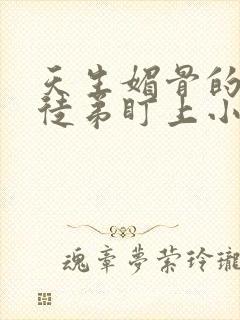 天生媚骨的
徒弟盯上小
魂牵梦萦玲瓏